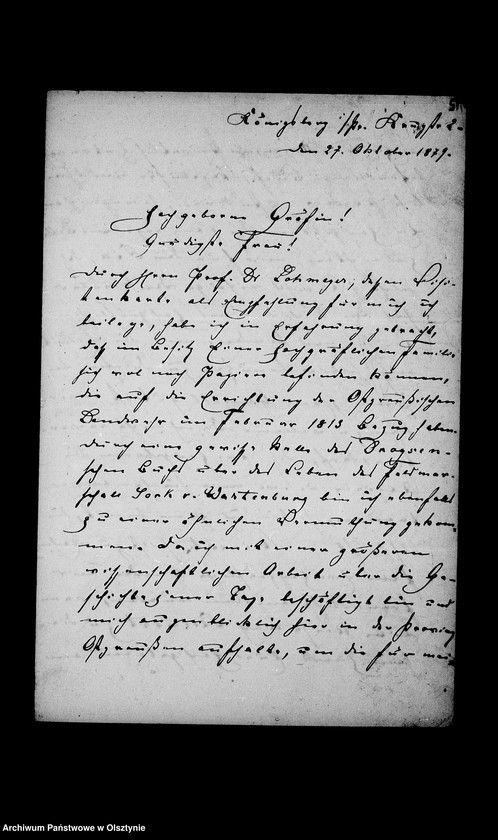 Königsberg i/Pr.
den 27. Oktober 1879.
Hochgeborene Gräfin!
Gnädigste Frau!
Durch Herrn Prof. Dr Lohmeyer, dessen Visi-
tenkarte als Empfehlung für mich ich
beilege, habe ich in Erfahrung gebracht,
daß im Besitz Einer Hochgräflichen Familie
sich wol noch Papiere befinden können,
die auf die Errichtung der Ostpreußischen
Landwehr im Februar 1813 Bezug haben.
Durch eine gewisse Stelle des Droysen-
schen Buchs über das Leben des Feldmar-
schall York v. Wartenburg bin ich ebenfalls
zu einer ähnlichen Vermuthung gekom-
men. Da ich mit einer größeren
wissenschaftlichen Arbeit über die Ge-
schichte jener Tage beschäftigt bin und
mich augenblicklich hier in der Provinz
Ostpreußen aufhalte, um die für mei-
Archiwum Państwowe w Olsztynie